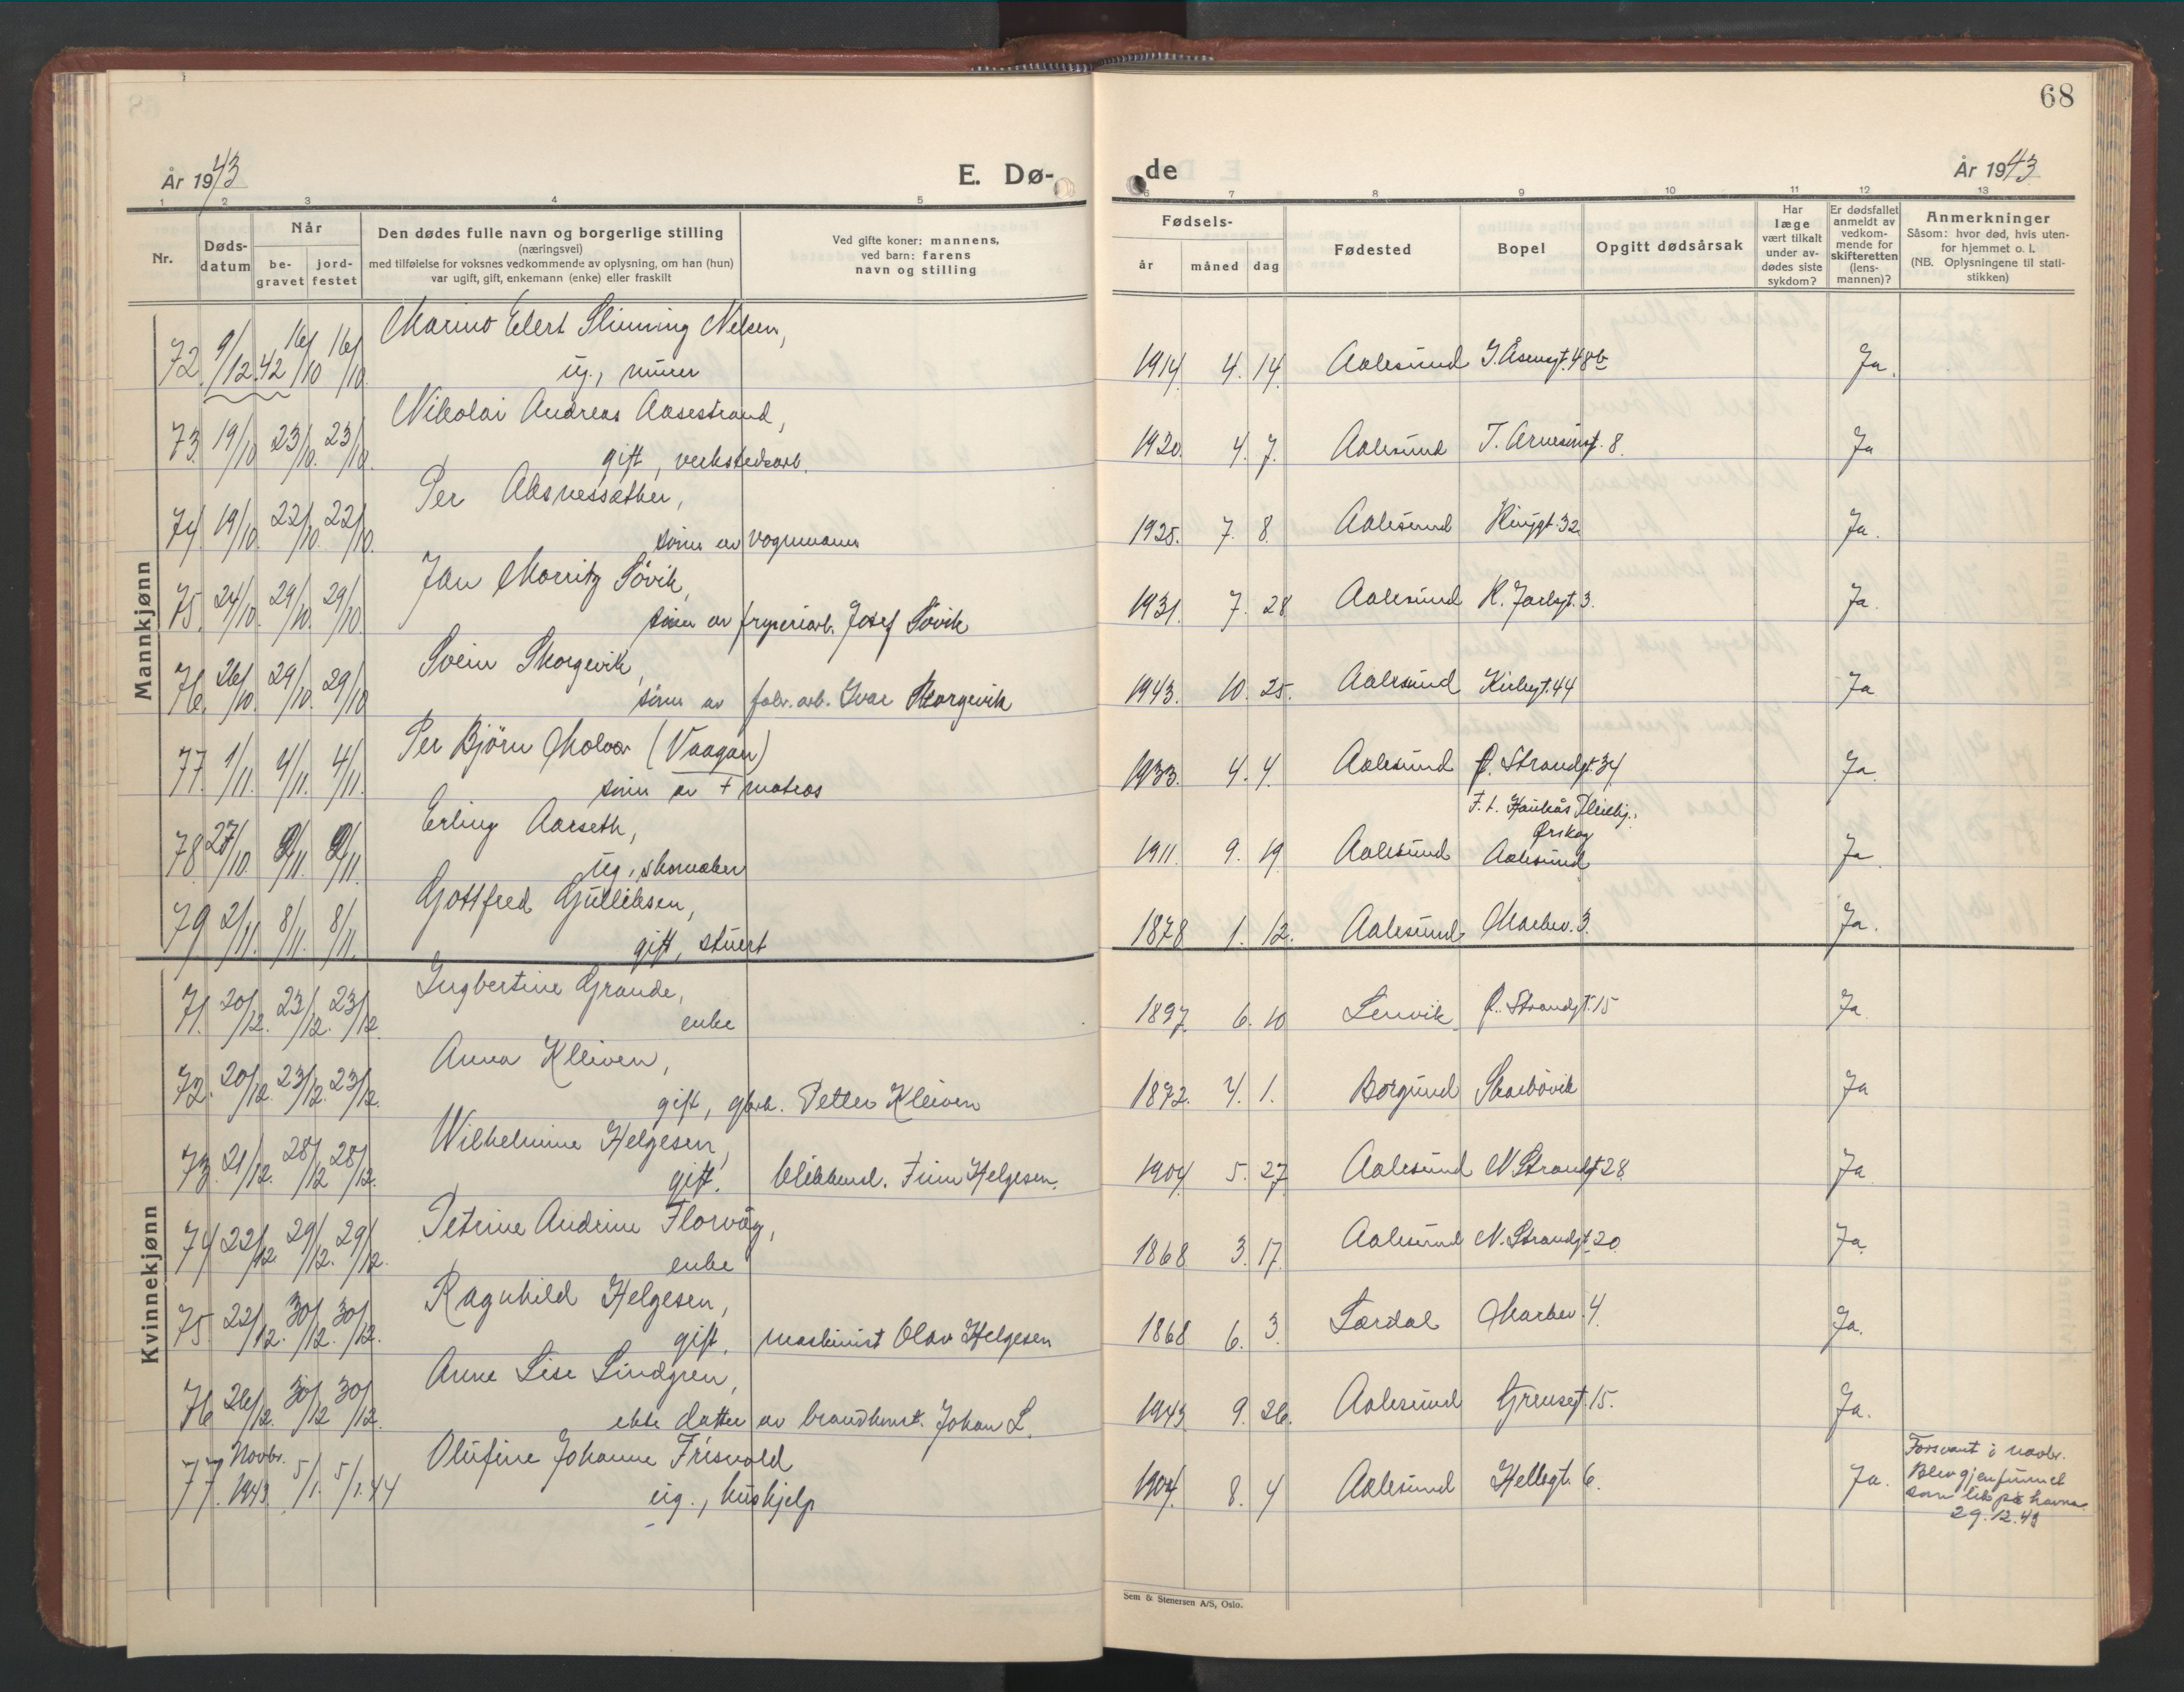 68
År 1943
E. Dø-
de
År 1943
1 2 3 4 5 6 7 8 9 10 11 12 13
Nr.
Døds-
datum
Når
be-
gravet
jord-
festet
Den dødes fulle navn og borgerlige stilling
(næringsvei)
med tilføielse for voksnes vedkommende av oplysning, om han (hun)
var ugift, gift, enkemann (enke) eller fraskilt
Ved gifte koner: mannens,
ved barn: farens
navn og stilling
Fødsels-
år måned dag
Fødested
Bopel
Opgitt dødsårsak
Har
læge
vært tilkalt
under av-
dødes siste
sykdom?
Er dødsfallet
anmeldt av
vedkom-
mende for
skifteretten
(lens-
mannen)?
Anmerkninger
Såsom: hvor død, hvis uten-
for hjemmet o. l.
(NB. Oplysningene til stati-
stikken)
Mannkjønn
Marino Elert Slinning Nelsen,
72. 9/12.42 16/10 16/10. ug., murer 1914. 4. 14. Aalesund J. Åsensgt. 48b Ja.
Nikolai Andreas Aasestrand,
73. 19/10. 23/10. 23/10. gift, verkstedsarb. 1920. 4. 7. Aalesund 8. Ja
Per Aksnessæther,
74. 19/10. 22/10. 22/10. sønn av vognmann 1925. 7. 8. Aalesund Ringgt. 32 Ja.
Jan Moritz Søvik,
75. 24/10. 29/10. 29/10. sønn av fryseriarb. Josef Søvik 1931. 7. 28 Aalesund R. Jarlsgt. 3. Ja.
Svein Skorgevik,
76. 26/10. 29/10. 29/10 sønn av fabr. arb. Ivar Skorgevik 1943. 10. 25. Aalesund Kirkegt. 44 Ja
Per Bjørn Molvær (Vaagan)
77. 1/11. 4/11. 4/11. sønn av + matros 1933. 4. 4. Aalesund Ø. Strandgt. 34 Ja.
Erling Aarseth,
F. t. Haukås Pleiehj.,
Ørskog
78 27/10. 2/11. 2/11. ug., skomaker 1911. 9. 19. Aalesund Aalesund Ja.
Gottfred Gulliksen,
79 2/11. 8/11. 8/11. gift, stuert 1878 1. 12. Aalesund Markev. 3. Ja.
Kvinnekjønn
Ingbertine Grande,
71. 20/12. 23/12. 23/12. enke 1897. 6. 10 Lenvik Ø. Strandgt. 15 Ja.
Anna Kleiven,
72. 20/12. 23/12. 23/12. gift, gbrk. Petter Kleiven 1872. 4. 1. Borgund Skarbøvik Ja
Wilhelmine Helgesen,
73. 21/12. 28/12 28/12. gift. blikkensl. Finn Helgesen. 1904. 5. 27. Aalesund N. Strandgt 28. Ja
Petrine Andrine Florvåg,
74 22/12 29/12. 29/12. enke 1868 3. 17. Aalesund N. Strandgt 20. Ja.
Ragnhild Helgesen,
75. 22/12. 30/12. 30/12. gift, maskinist Olav Helgesen 1868 6. 3. Lærdal Markev. 4. Ja.
Anne Lise Lindgren,
76 26/12. 30/12 30/12. ekte datter av brandkonst. Johan L. 1943. 9. 26. Aalesund Grensegt. 15. Ja.
Olufine Johanne Frisvold
77. Novbr. 1943. 5/1. 5/1.44 ug., hushjelp 1904. 8. 4 Aalesund Hellegt. 6. Ja.
Forsvant i novbr.
Blev gjenfunnet
som lik på havna
29.12.43
Sem & Stenersen A/S, Oslo.